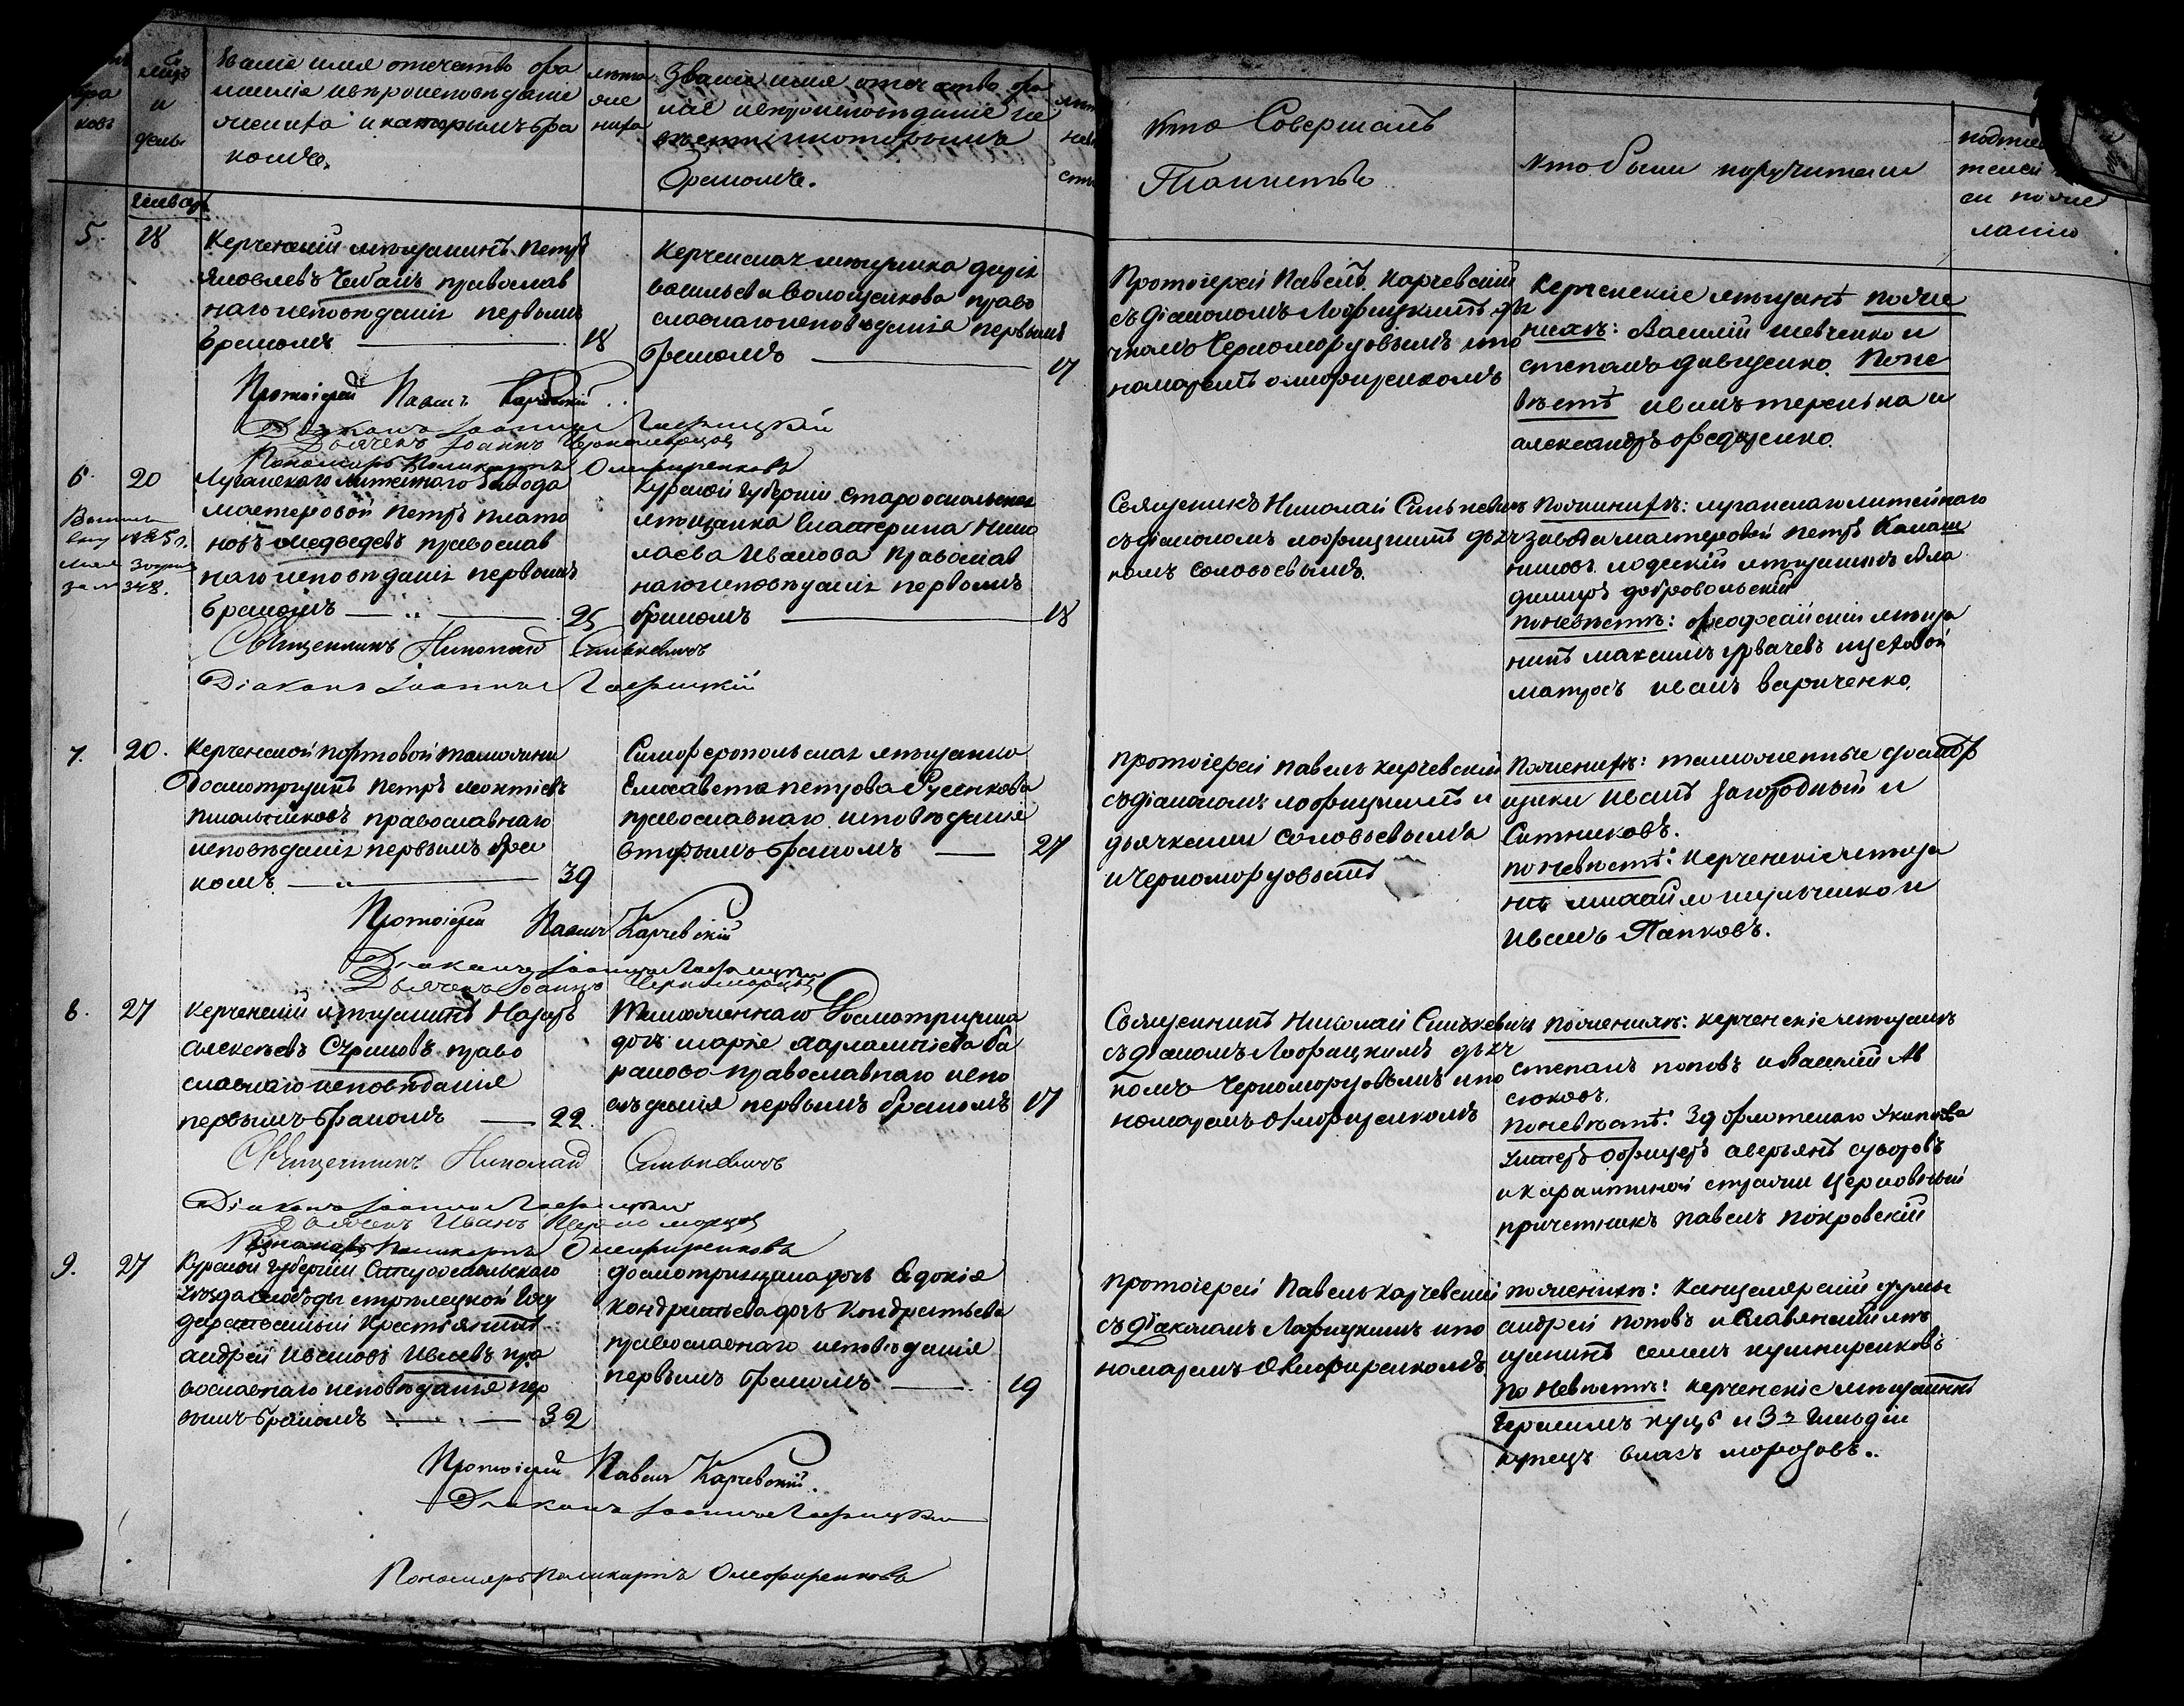 браковъ
Мѣсяцъ и день
Званіе имя отечество фамилія и вѣроисповѣданіе жениха и которымъ бракомъ.
лѣта жениха
Званіе имя отечество фамилія и вѣроисповѣданіе невѣсты и которымъ бракомъ.
Кто Совершалъ Таинство
кто были поручители
Январь
5.
18
Керченскій мѣщанинъ Петръ
Яковлевъ Чабанъ православ
наго исповѣданія первымъ
бракомъ
18
Керченская мѣщанка
васильева Волощенкова право
славнаго исповѣданія первымъ
бракомъ
17
Протоіерей Павелъ Карчевскій
съ діакономъ Лофицкимъ дьяч
комъ Черноморцовымъ и по
номаремъ Олефиренкомъ
Керченские мѣщане по же
нихѣ: Василій шевченко и
степанъ давиденко. По не
вѣстѣ иванъ терентка и
александръ федченко.
Протоіерей Павелъ Карчевскій
Діаконъ Іоаннъ Лофицкій
Дьячекъ Іоаннъ Черноморцов
Пономарь Поликарпъ Олефиренковъ
6.
20
348.
Луганскаго литейнаго Завода
мастеровой Петръ Плато
новъ медведевъ православ
наго исповѣданія первымъ
бракомъ
25
Курской Губерніи Старооскольская
мѣщанка Екатерина Нико
лаева Иванова Православ
наго исповѣданія первымъ
бракомъ
18
Священикъ Николай Синькевичъ
съ діакономъ лофицкимъ дьяч
комъ соловьевымъ.
По женихѣ: луганскаго литейнаго
завода мастеровой Петръ Калаш
никовъ. мѣщанинъ Вла
димиръ добровольскій
по невѣстѣ: феодосійскій мѣща
нинъ максимъ
матросъ иванъ вариченко.
Священникъ Николай Синькевичъ
Діаконъ Іоаннъ Лофицкій
7.
20.
Керченской Портовой таможни
Досмотрщикъ Петръ леонтіевъ
Пшаличниковъ православнаго
исповѣданія первымъ бра
комъ
39
Симферопольская мѣщанка
Елисавета петрова Русенкова
православнаго исповѣданія
вторымъ бракомъ
27
Протоіерей Павелъ Карчевскій
съ діакономъ лофицкимъ и
дьячками соловьевымъ
и черноморцовымъ
По женихѣ: таможенные досмотр
щики Иванъ Загородный и
Ситниковъ.
по невѣстѣ: Керченскіе мѣща
не михайло шульшико и
Иванъ Папковъ.
Протоіерей Павелъ Карчевскій
Діаконъ Іоаннъ Лофицкій
Дьячекъ Іоаннъ Черноморцов
8.
27
Керченскій мѣщанинъ Назаръ
алексѣевъ Сѣриковъ право
славнаго исповѣданія
первымъ бракомъ
22.
Таможеннаго Досмотрщика
дочь марія харлампіева ба
ранова православнаго испо
вѣданія первымъ бракомъ
17
Священникъ Николай Синькевичъ
съ діакономъ Лофицкимъ дьяч
комъ Черноморцовымъ и по
номаремъ Олефиренкомъ
По женихѣ: керченскіе мѣщане
степанъ поповъ и Василій Ав
сюковъ.
По невѣстѣ: 39 флотскаго экипажа
унтеръ офицеръ аверьянъ суворовъ
и карантиной стражи церковный
причетникъ павелъ покровскій
Священникъ Николай Синькевичъ
Діаконъ Іоаннъ Лофицкій
Дьячекъ Иванъ Черноморцов
Пономарь Поликарпъ Олефиренковъ
9.
27
Курской Губерніи Старооскольскаго
Уѣзда слободы стрѣлецкой Госу
дарственный Крестьянинъ
андрей Ивановъ Ивлевъ пра
вославнаго исповѣданія пер
вымъ бракомъ
32
досмотрщика дочь Евдокія
Кондратьева дочь Кондратьева
православнаго исповѣданія
первымъ бракомъ
19
Протоіерей Павелъ Карчевскій
съ діакономъ Лофицкимъ и по
номаремъ Олефиренкомъ
По женихѣ: Канцелярскій думы
андрей поповъ и Славянскій мѣ
щанинъ семенъ кушниренковъ
По невѣстѣ: Керченскіе мѣщанинъ
Герасимъ куцъ и 3й Гильдіи
купецъ власъ морозовъ.
Протоіерей Павелъ Карчевскій.
Діаконъ Іоаннъ Лофицкій
Пономарь Поликарпъ Олефиренковъ